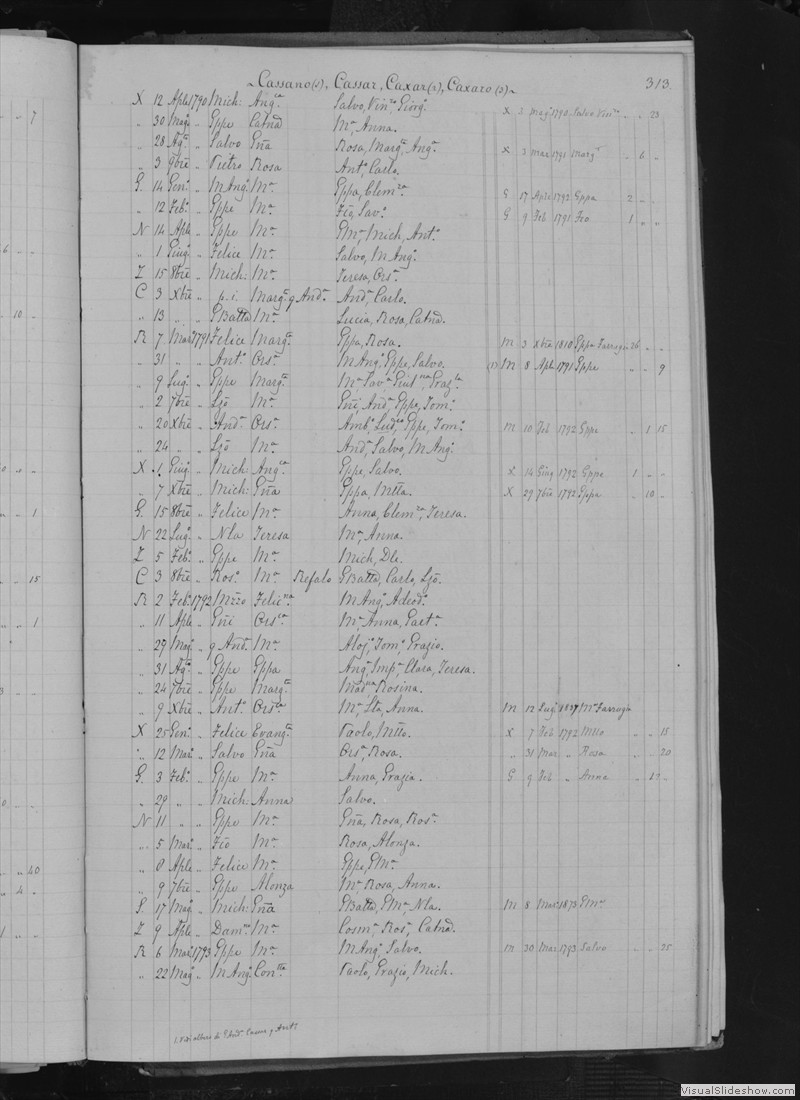 Cassano(s), Cassar, Caxar(s), Caxaro(s) 313
X 12 Aple 1790 Mich: Ang.ca Salvo, Vin.zo Giorg.o X 2 Mag.o 1790 Salvo Vin.zo „ „ 23
„ 30 Mag.o „ Gppe Catnd M.a Anna.
„ 28 Ag.o „ Salvo Gña Rosa, Marg.ta Ang.a X 3 Mar 1791 Marg.ta „ 6 „
„ 3 9bre „ Pietro Rosa Ant.o Carlo.
G. 14 Gen.o „ M Ang.o M.a Gppa, Clem.za G 17 Aple 1792 Gppa 2 „ „
„ 12 Feb.o „ Gppe M.a Fco, Sav.o G 9 Feb 1791 Fco 1 „ „
N 14 Aple „ Gppe M.a GM.a, Mich, Ant.o
„ 1 Giug.o „ Felice M.a Salvo, M Ang.o
Z 15 8bre „ Mich: M.a Teresa, Ors.a
C 3 Xbre „ p.i. Marg.ta q And.a And.a, Carlo.
„ 13 „ „ GBatta M.a Lucia, Rosa, Catnd.
R 7 Mar 1791 Felice Marg.ta Gppa, Rosa. M 3 Xbre 1810 Gppa Farrugia 26 „ „
„ 31 „ „ Ant.o Ors.a M Ang.o Gppe, Salvo. (1) M 8 Aple 1791 Gppe „ „ 9
„ 9 Lug.o „ Gppe Marg.ta
„ 2 7bre „ Lzo M.a Gñi, And.a, Gppe, Tom.o
„ 20 Xbre „ And.a Ors.a Amb.o, Lud.o Gppe, Tom.o M 10 Feb 1792 Gppe „ 1 15
„ 24 „ „ Lzo M.a And.a, Salvo, M Ang.o
X 1 Giug.o „ Mich Ang.ca Gppe, Salvo. X 14 Giug 1792 Gppe 1 „ „
„ 7 Xbre „ Mich: Gña Gppa, Mtta. X 29 7bre 1792 Gppa „ 10 „
G. 15 8bre „ Felice M.a Anna, Clem.za, Teresa.
N 22 Lug.o „ Nla Teresa M.a, Anna.
Z 5 Feb.o „ Gppe M.a Mich, Dle.
C 3 8bre „ Ros.o M.a Refalo GBatta, Carlo, Lzo.
R 2 Feb.o 1792 Mzzo Felic.na M Ang.o, Adeod.o
„ 11 Aple „ Gñi Ors.a M.a, Anna, Gaet.a
„ 29 Mag.o „ q And.a M.a Aloj.o, Tom.o, Grazio.
„ 31 Ag.o „ Gppe Gppa Ang.o, Imp.a, Clara, Teresa.
„ 24 7bre „ Gppe Marg.ta Rosina.
„ 9 Xbre „ Ant.o Ors.la M.a, Lta, Anna. M 12 Lug 1837 M.a Farrugia
X 25 Gen.o „ Felice Evang.ta Paolo, Mtto. X 7 Feb 1792 Mtto „ „ 15
„ 12 Mar.o „ Salvo Gña Ors.a, Rosa. „ 31 Mar „ Rosa „ „ 20
G. 3 Feb.o „ Gppe M.a Anna, Grazia. G 9 Feb „ Anna „ 12 „
„ 29 „ „ Mich: Anna Salvo.
N 11 „ „ Gppe M.a Gña, Rosa, Ros.o
„ 5 Mar.o „ Fco M.a Rosa, Alonza.
„ 8 Aple „ Felice M.a Gppe, GM.a
„ 9 7bre „ Gppe Alonza M.a, Rosa, Anna.
S. 17 Mag.o „ Mich: Gña GBatta, GM.a, Nla. M 8 Mar 1873 GM.a
Z 9 Aple „ Dam.no M.a Cosm.o, Ros.o, Catnd.
R 6 Mar 1793 Gppe M.a M Ang.o, Salvo. M 30 Mar 1793 Salvo „ „ 25
„ 22 Mag.o „ M Ang.o Con.tta Paolo, Grazio, Mich.
VisualSlideshow.com